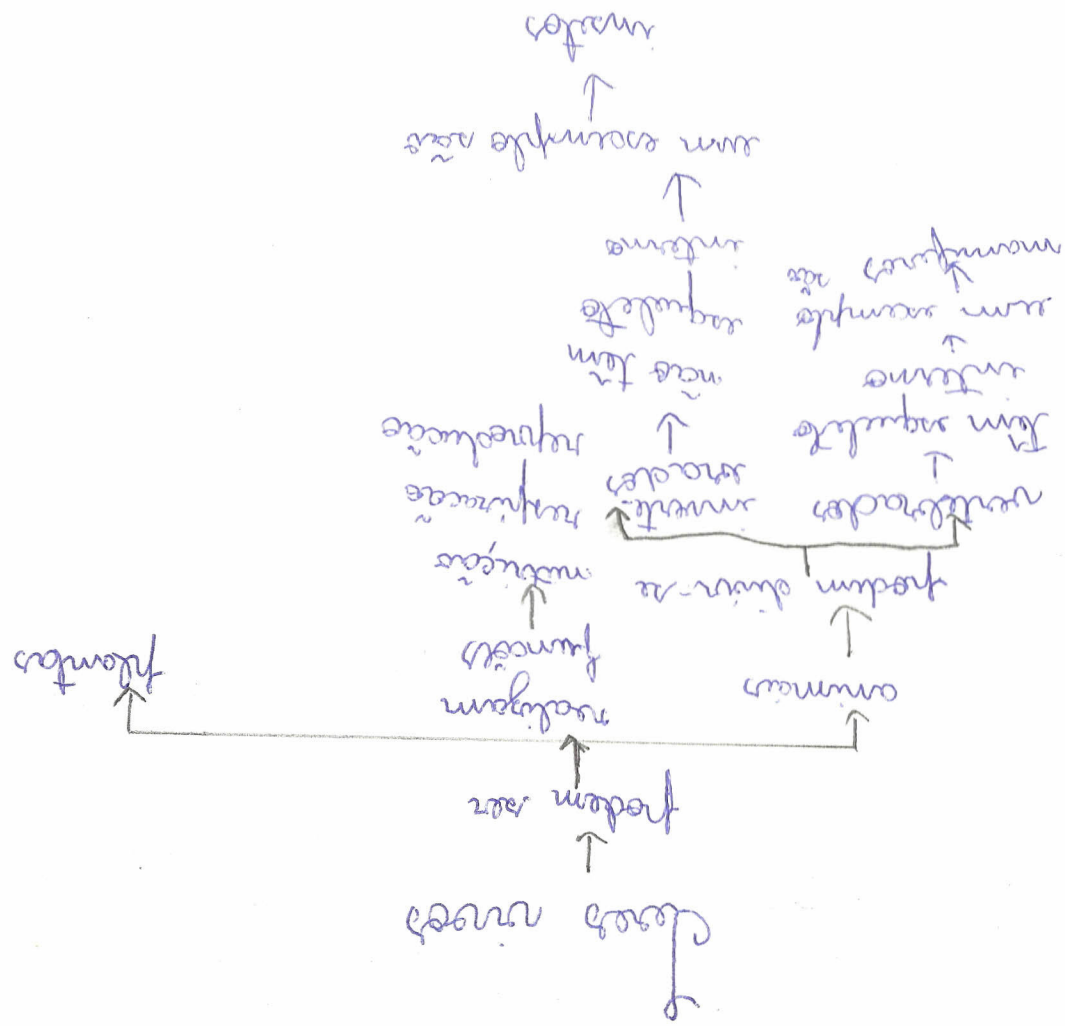 Seres vivos
podem ser
animais
realizam
funções
plantas
podem dividir-se
nutrição
respiração
reprodução
vertebrados
inverte-
brados
Têm esqueleto
interno
não têm
esqueleto
interno
um exemplo são
mamíferos
um exemplo são
insetos